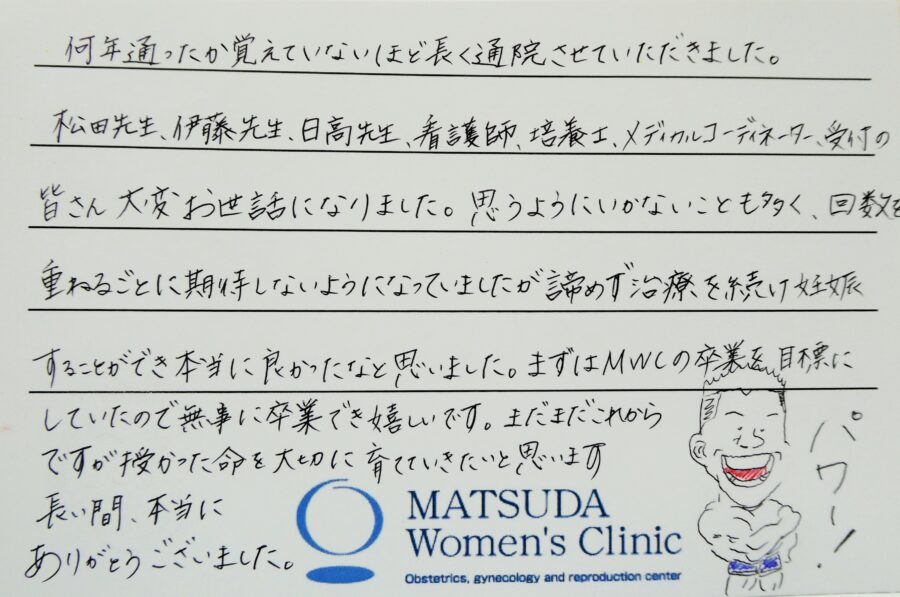 何年通ったか覚えていないほど長く通院させていただきました。
松田先生、伊藤先生、日高先生、看護師、培養士、メディカルコーディネーター、受付の
皆さん 大変お世話になりました。思うようにいかないことも多く、回数を
重ねるごとに期待しないようになっていましたが諦めず治療を続け妊娠
することができ本当に良かったなと思いました。まずはMWCの卒業を目標に
していたので無事に卒業でき嬉しいです。まだまだこれから
ですが授かった命を大切に育てていきたいと思います
長い間、本当に
ありがとうございました。
パワー!
MATSUDA
Women's Clinic
Obstetrics, gynecology and reproduction center